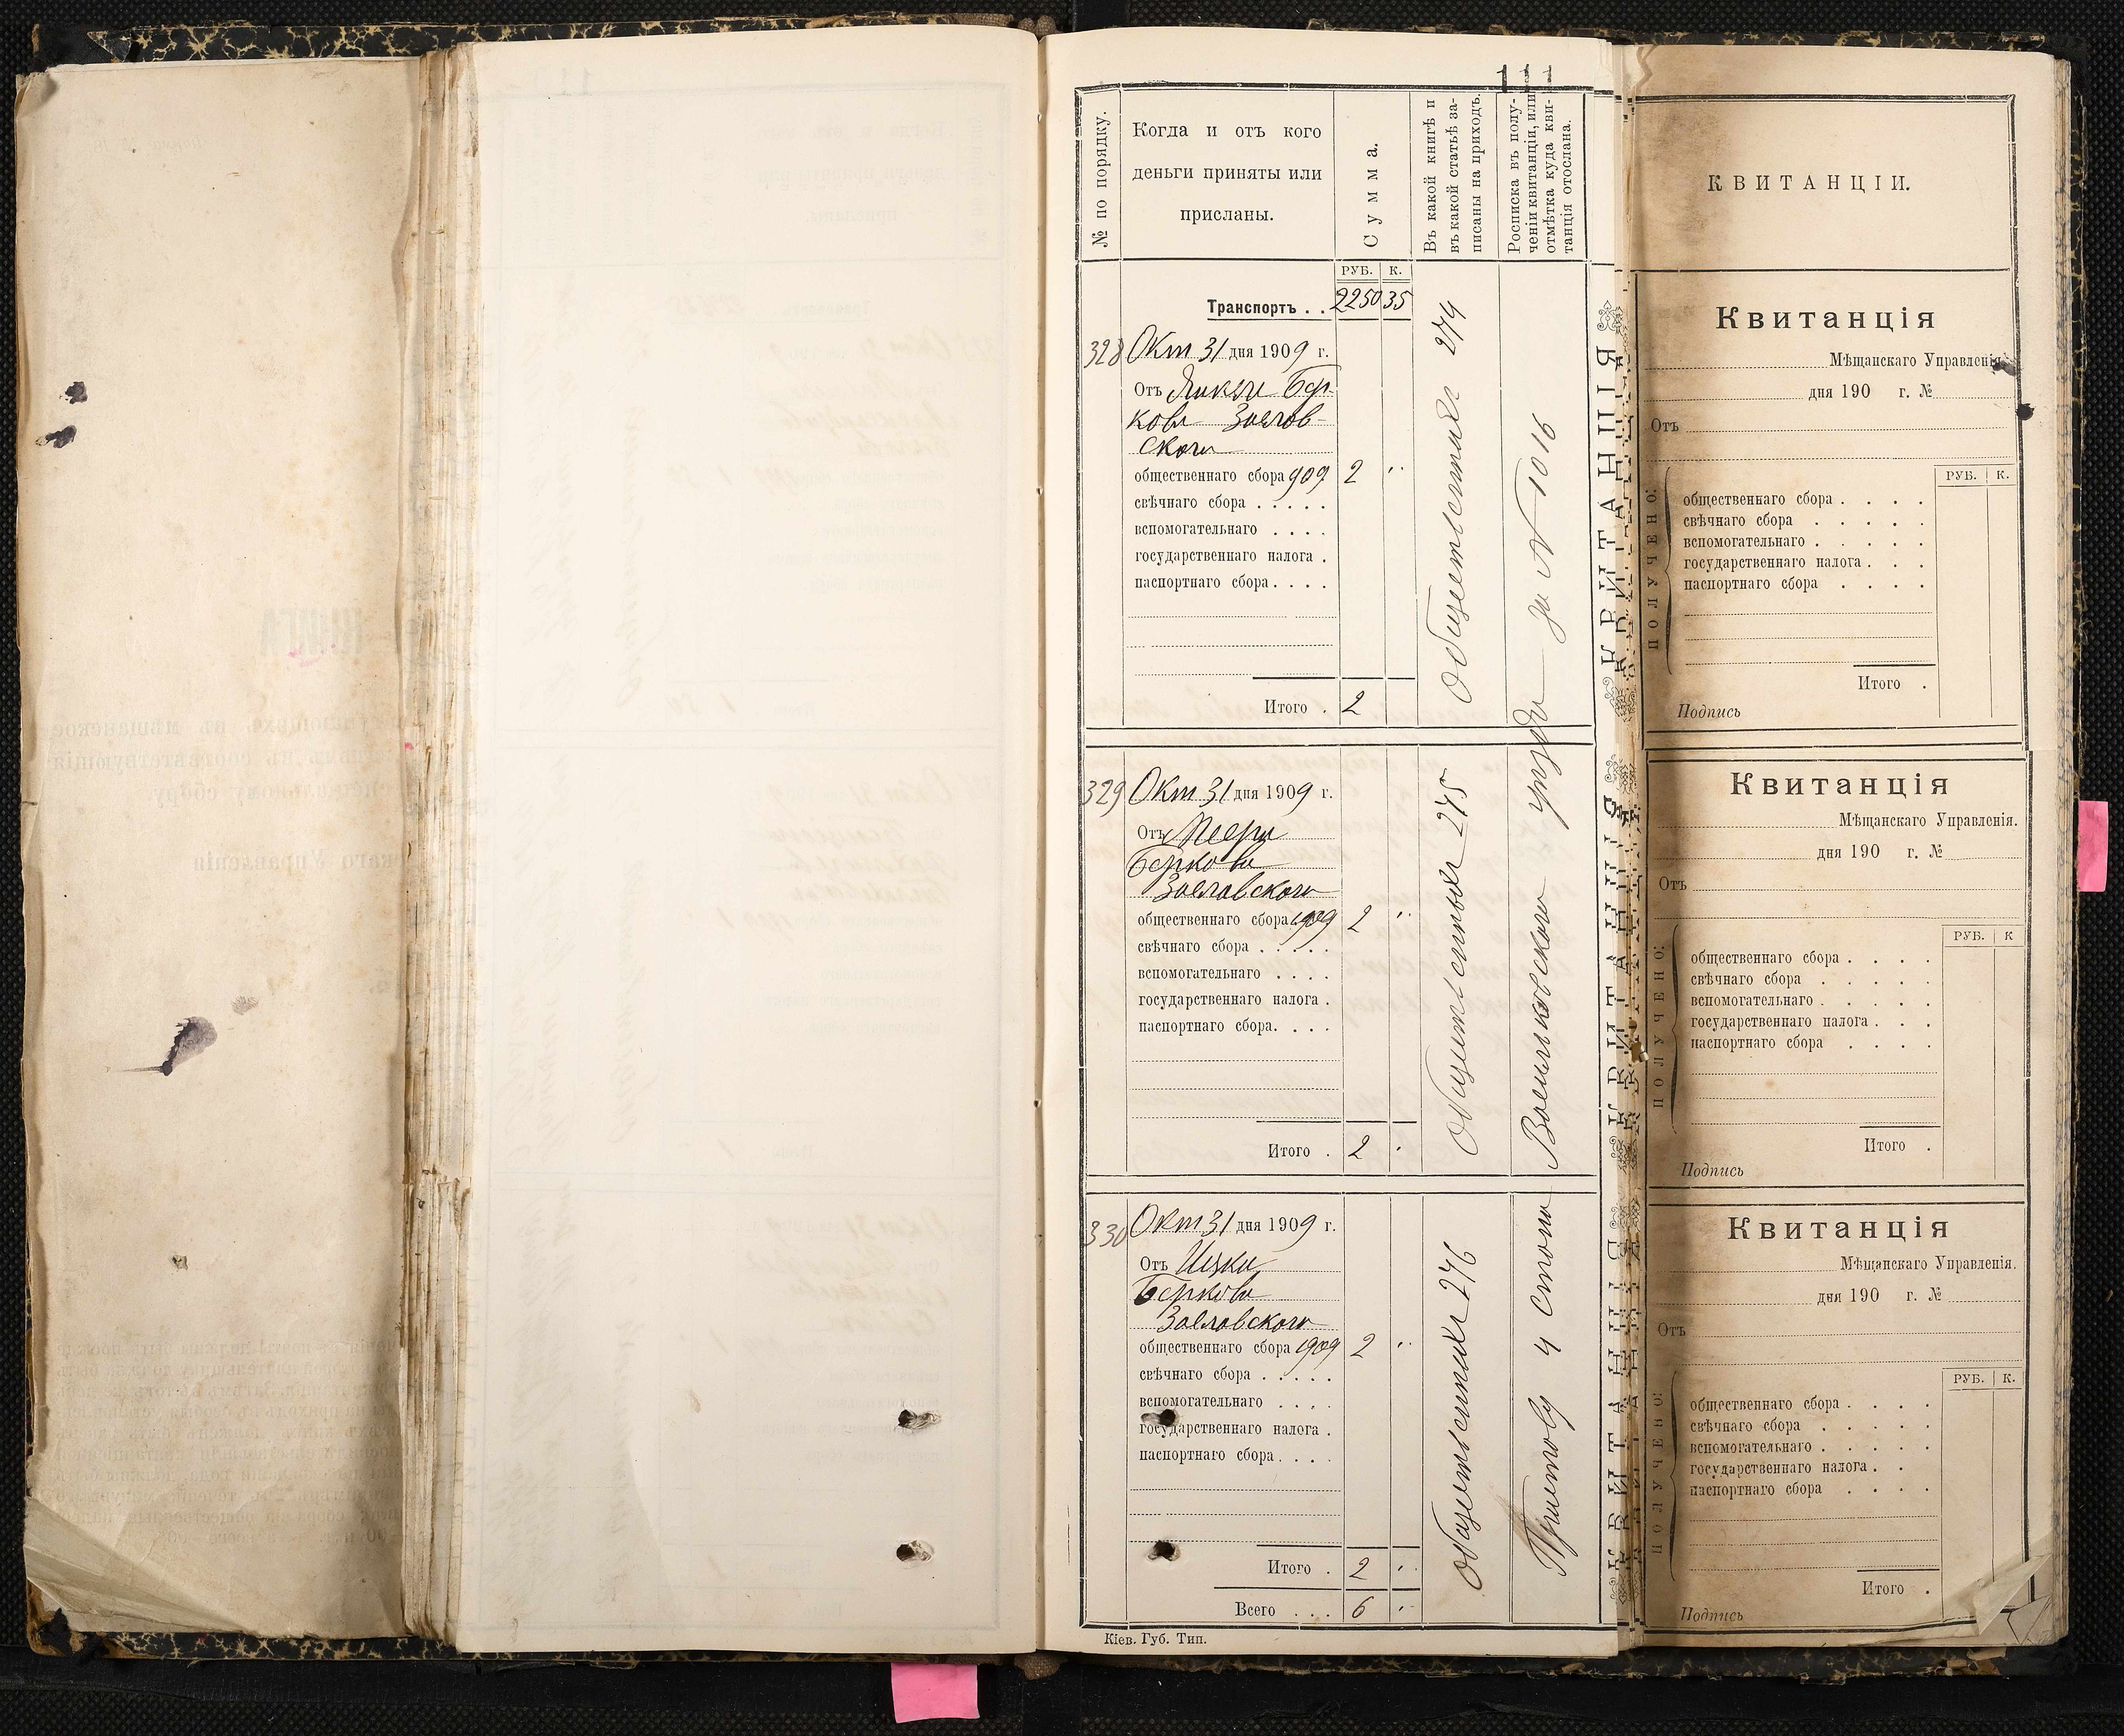 111
№ по порядку.
Когда и отъ кого
деньги приняты или
присланы.
Сумма.
Въ какой книгѣ и
въ какой статьѣ за-
писаны на приходъ.
Росписка въ полу-
ченіи квитанціи, или
отмѣтка куда кви-
танція отослана.
РУБ. К.
Транспортъ . . 2250 35
328 Окт 31 дня 1909 г.
Отъ Янкеля Бер-
кова Заслав-
скаго
общественнаго сбора 909 2 "
свѣчнаго сбора . . . . .
вспомогательнаго . . . .
государственнаго налога .
паспортнаго сбора . . . .
Итого . 2
общественныхъ 274
329 Окт 31 дня 1909 г.
Отъ Меера
Беркова
Заславскаго
общественнаго сбора 1909 2 "
свѣчнаго сбора . . . . .
вспомогательнаго . . . .
государственнаго налога .
паспортнаго сбора. . . .
Итого . 2 "
общественныхъ 275
330 Окт 31 дня 1909 г.
Отъ Ицки
Беркова
Заславскаго
общественнаго сбора 1909 2 "
свѣчнаго сбора . . . . .
вспомогательнаго . . . .
государственнаго налога .
паспортнаго сбора . . . .
Итого . 2 "
Всего . . . 6 "
общественныхъ 276
Приставу 4 стана Васильковскаго уѣзда за № 1016
Кіев. Губ. Тип.
КВИТАНЦІЯ
КВИТАНЦІЯ
КВИТАНЦІЯ
КВИТАНЦІИ.
Квитанція
Мѣщанскаго Управленія.
дня 190 г. №
Отъ
РУБ. К.
ПОЛУЧЕНО:
общественнаго сбора . . . .
свѣчнаго сбора . . . . .
вспомогательнаго . . . . .
государственнаго налога . . .
паспортнаго сбора . . . .
Итого .
Подпись
Квитанція
Мѣщанскаго Управленія.
дня 190 г. №
Отъ
РУБ. К
ПОЛУЧЕНО:
общественнаго сбора . . . .
свѣчнаго сбора . . . . .
вспомогательнаго . . . . .
государственнаго налога . . .
паспортнаго сбора . . . .
Итого .
Подпись
Квитанція
Мѣщанскаго Управленія.
дня 190 г. №
Отъ
РУБ. К.
ПОЛУЧЕНО:
общественнаго сбора . . . .
свѣчнаго сбора . . . . .
вспомогательнаго . . . . .
государственнаго налога . .
паспортнаго сбора . . . .
Итого .
Подпись